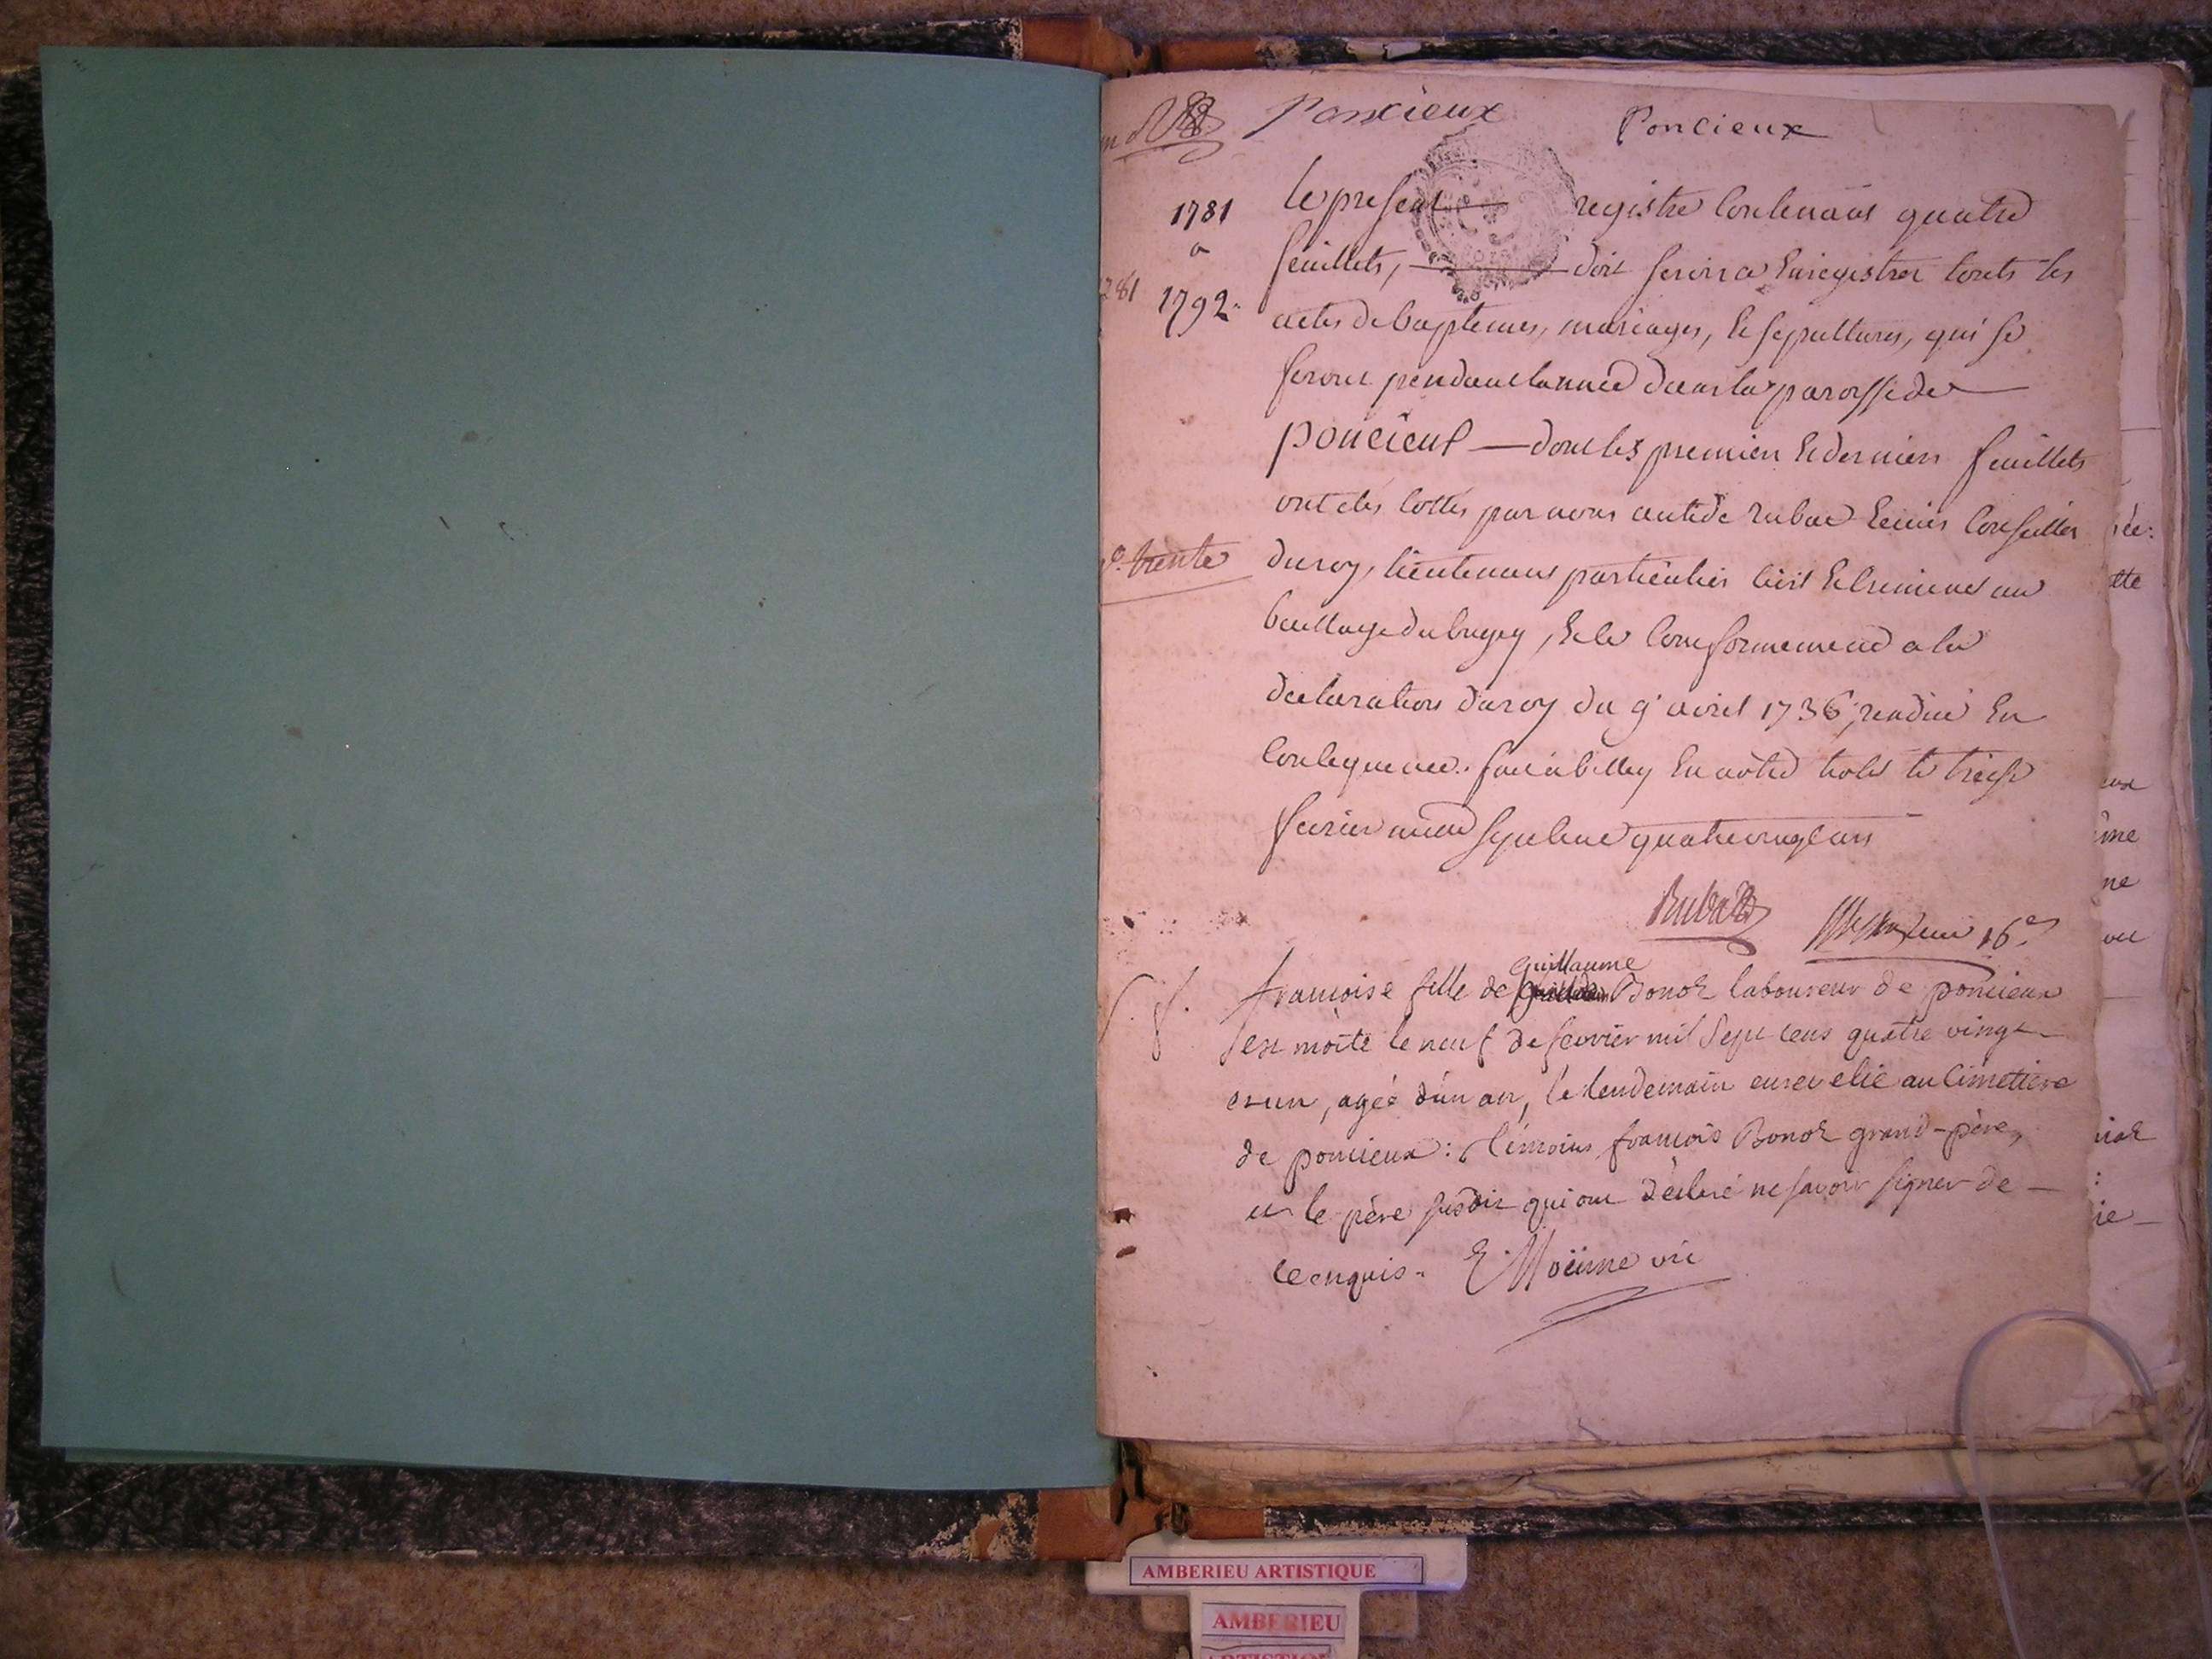 Poncieux
Poncieux
1781
a
1792
le present registre Contenant quatre
feuillets, doit servir a Enregistrer touts les
actes de baptemes, mariages, & sepultures, qui se
feront pendant lannée dans la paroisse de
poncieux — dont les premier & dernier feuillets
ont etés Cottés par nous Conseiller
du roy, lieutenant particulier Civil & Criminel au
bailliage du bugey, & le Conformement a la
declaration du roy du 9 avril 1736, rendue En
Consequence. fait a belley En notre hotel le treise
fevrier mil sept cent quatre vingt un
Rubat
16e
v.o trente
S.
francoise fille de Guillaume Bonot laboureur de poncieux
est morte le neuf de fevrier mil sept cens quatre vingt-
et un, agée d'un an, le lendemain ensevelie au Cimetiere
de poncieux: témoins françois Bonot grand-père,
et le père susdit qui ont déclaré ne savoir signer de —
ce enquis. Moiime vic
AMBERIEU ARTISTIQUE
AMBERIEU
ARTISTIQUE